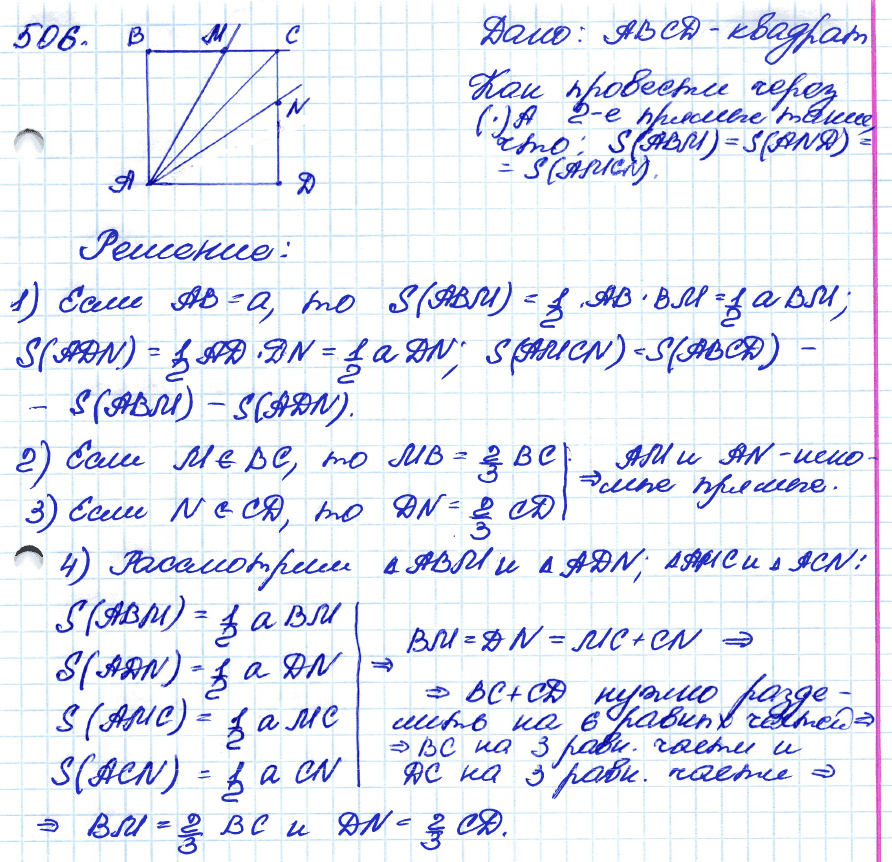 506.
B M C
N
A D
Дано: ABCD - квадрат
Как провести через
(·) A 2-е прямые такие,
что: S(ABM) = S(AND) =
= S(AMCN).
Решение:
1) Если AB = a, то S(ABM) = 1/2 · AB · BM = 1/2 a BM;
S(ADN) = 1/2 AD · DN = 1/2 a DN; S(AMCN) = S(ABCD) -
- S(ABM) - S(ADN).
2) Если M ∈ BC, то MB = 2/3 BC
3) Если N ∈ CD, то DN = 2/3 CD
⇒ AM и AN - иско-
мые прямые.
4) Рассмотрим △ABM и △ADN; △AMC и △ACN:
S(ABM) = 1/2 a BM
S(ADN) = 1/2 a DN
S(AMC) = 1/2 a MC
S(ACN) = 1/2 a CN
⇒ BM = DN = MC + CN ⇒
⇒ BC + CD нужно разде-
лить на 6 равных частей ⇒
⇒ BC на 3 равн. части и
DC на 3 равн. части ⇒
⇒ BM = 2/3 BC и DN = 2/3 CD.